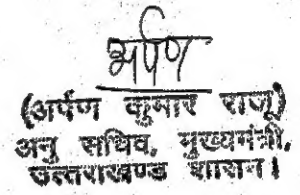 अर्पण
(अर्पण कुमार राजू)
अनु सचिव, मुख्यमंत्री,
उत्तराखण्ड शासन।